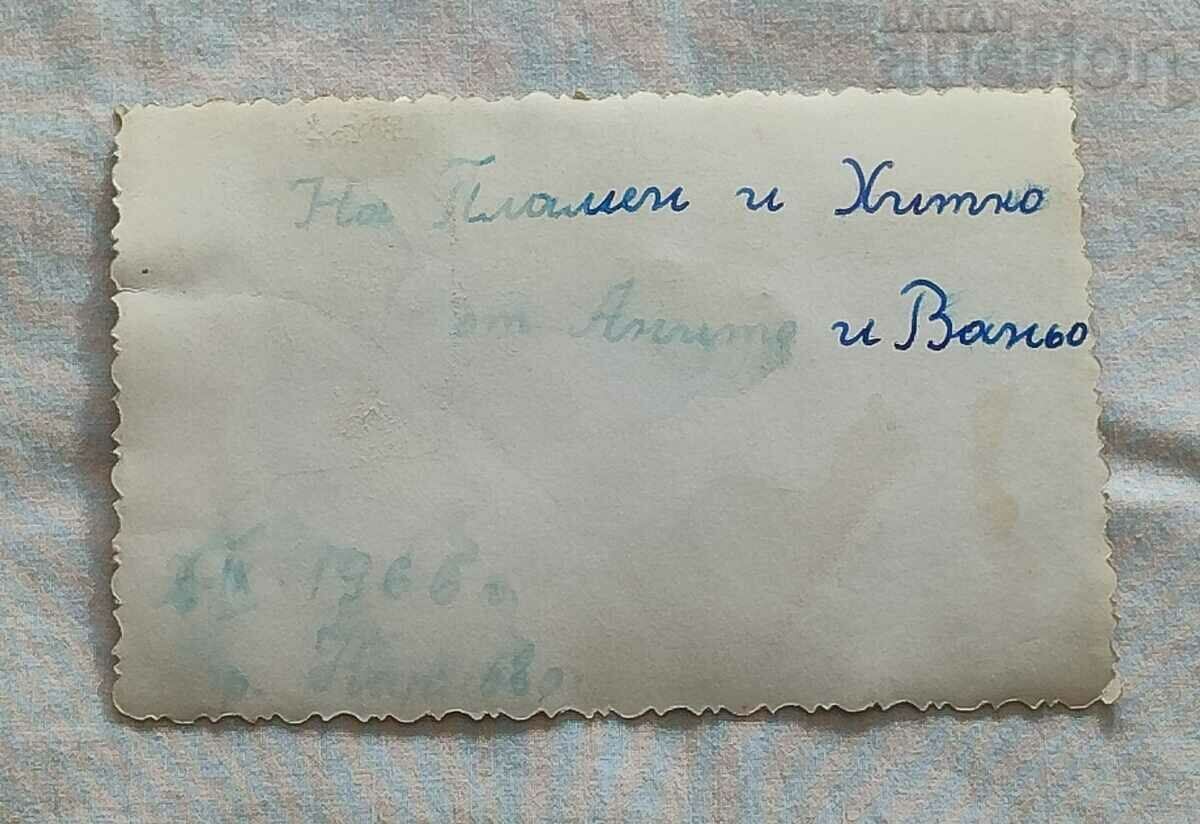 BALKAN
auction
На Пламен и Хитко
от Анита и Ваньо
1966 г.